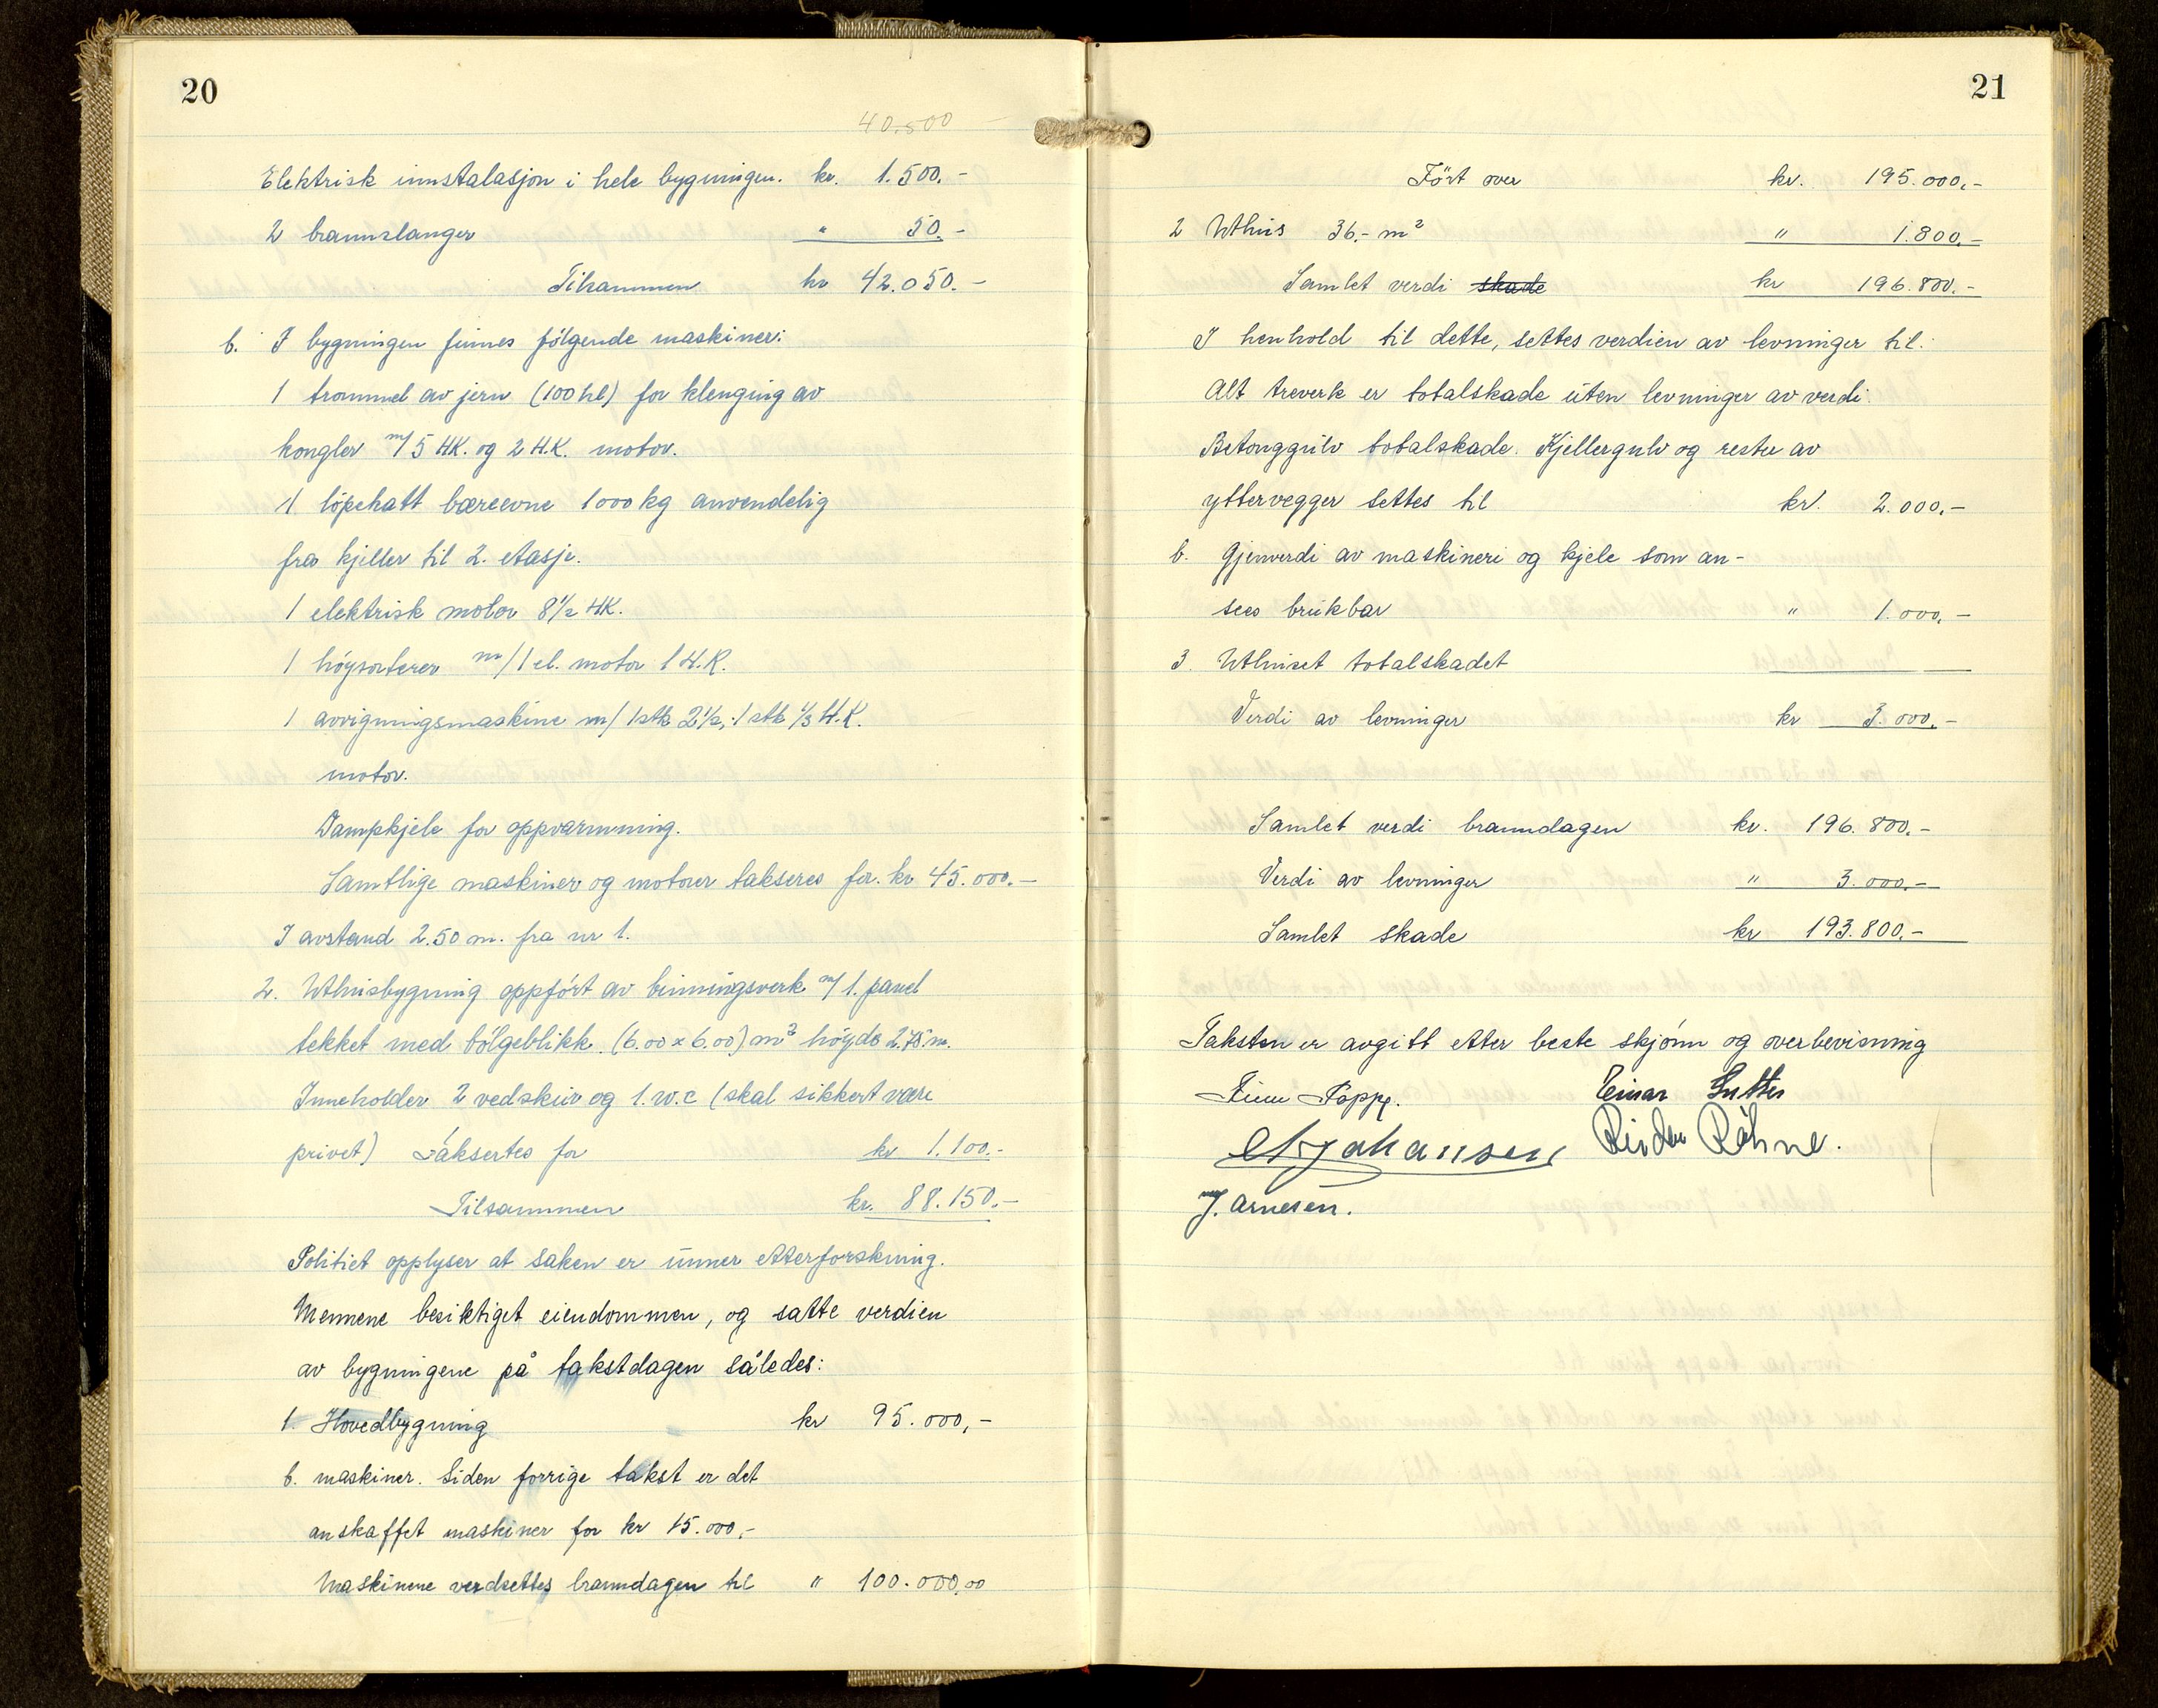 20
40.500
Elektrisk innstalasjon i hele bygningen. kr. 1.500.-
2 brannslanger " 50.-
Tilsammen kr 42.050.-
b. I bygningen finnes følgende maskiner:
1 trommel av jern (100 hl) for klenging av
kongler m/ 5 HK. og 2 H.K. motor.
1 löpekatt bæreevne 1000 kg anvendelig
fra kjeller til 2. etasje.
1 elektrisk motor 8 1/2 HK.
1 m/ 1 el. motor 1 H.K.
1 avvigningsmaskine m/ 1 stk 2 1/2, 1 stk 1/3 H.K.
motor.
Dampkjele for oppvarmning.
Samtlige maskiner og motorer takseres for. kr 45.000.-
I avstand 2.50 m. fra nr 1.
2. Uthusbygning oppført av binningsverk m/ 1. panel
tekket med bølgeblikk. (6.00 x 6.00) m² höyde 2.75 m.
Inneholder 2 vedskur og 1. w.c (skal sikkert være
privet) Taksertes for kr 1.100.-
Tilsammen kr. 88.150.-
Politiet opplyser at saken er unner etterforskning.
Mennene besiktiget eiendommen, og satte verdien
av bygningene på takstdagen således:
1. Hovedbygning kr 95.000,-
b. maskiner. Siden forrige takst er det
anskaffet maskiner for kr 15.000,-
Maskinene verdsettes branndagen til " 100.000,00
21
Fört over kr. 195.000,-
2 Uthus 36.- m² " 1.800,-
Samlet verdi skade kr 196.800.-
I henhold til dette, settes verdien av levninger til:
Alt treverk er totalskade uten levninger av verdi.
Betonggulv totalskade. Kjellergulv og rester av
yttervegger settes til kr. 2.000,-
b. Gjenverdi av maskineri og kjele som an-
sees brukbar " 1.000,-
3. Uthuset totalskadet
Verdi av levninger kr 3.000,-
Samlet verdi branndagen kr. 196.800,-
Verdi av levninger " 3.000,-
Samlet skade kr 193.800,-
Taksten er avgitt etter beste skjønn og overbevisning
Finn Popp. Einar
Johansen Röhne.
J. Arnesen.